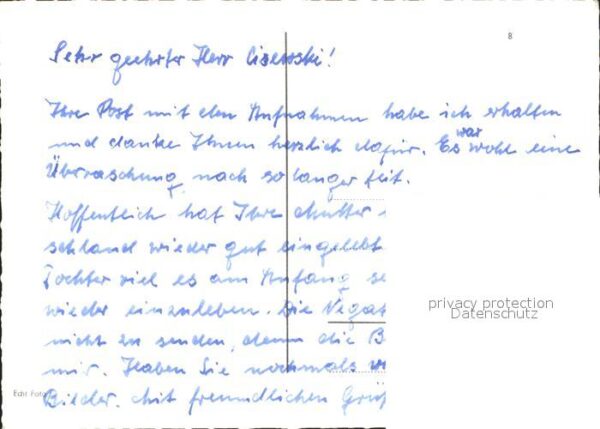 8
Sehr geehrter Herr Cisewski!
Ihre Post mit den Aufnahmen habe ich erhalten
und danke Ihnen herzlich dafür. Es war wohl eine
Überraschung nach so langer Zeit.
Hoffentlich hat Ihre Mutter
schland wieder gut eingelebt
Tochter viel es am Anfang se
wieder einzuleben. Die Negat
nicht zu senden, denn die B
mir. Haben Sie nochmals
Bilder. Mit freundlichen Grüß
privacy protection
Datenschutz
Echt Foto